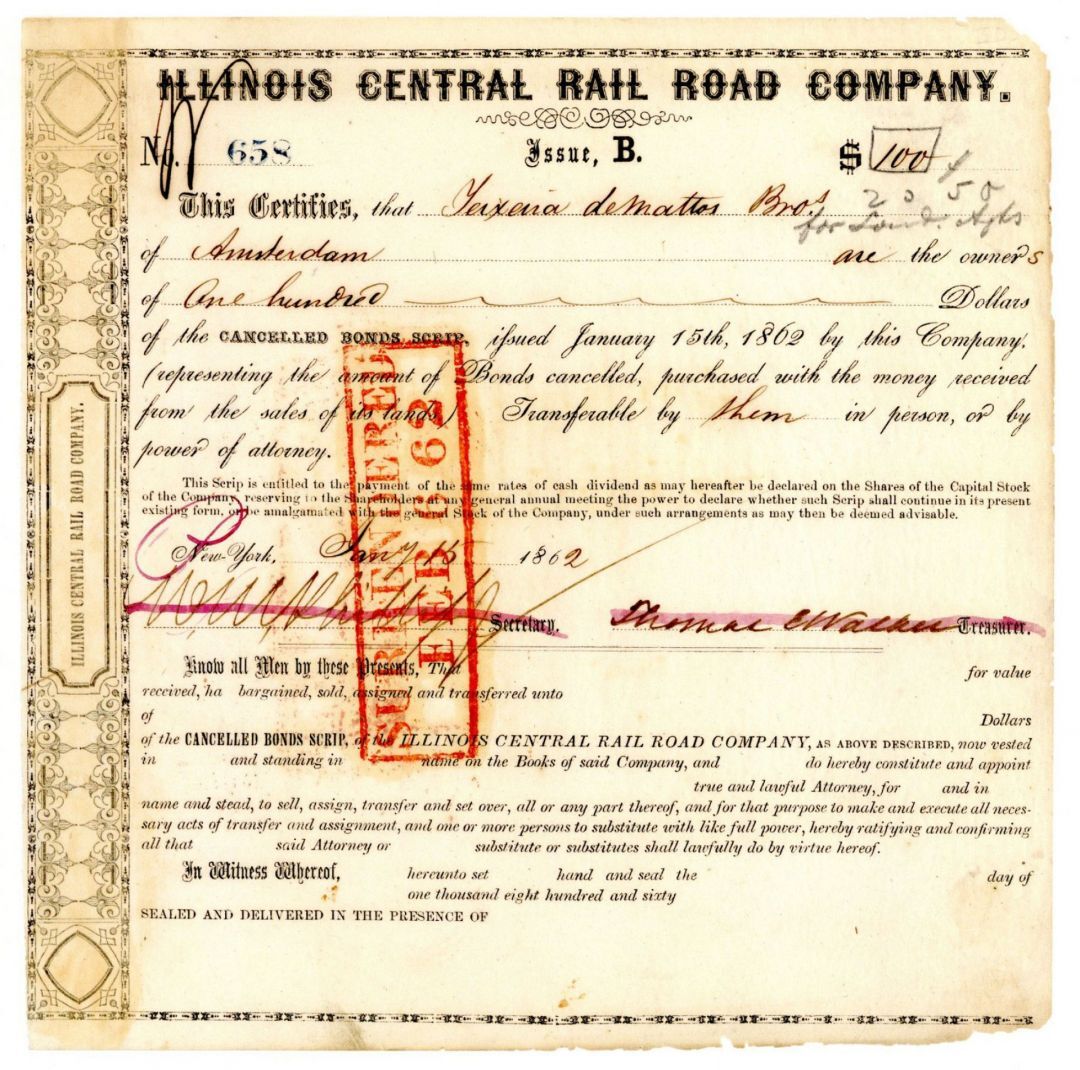 ILLINOIS CENTRAL RAIL ROAD COMPANY.
No. 658 Issue, B. $ 100
This Certifies, that Teixeira deMattos Bros
for
of Amsterdam are the owners
of One hundred Dollars
of the CANCELLED BONDS SCRIP, issued January 15th, 1862 by this Company,
(representing the amount of Bonds cancelled, purchased with the money received
from the sales of its lands,) Transferable by them in person, or by
power of attorney.
This Scrip is entitled to the payment of the same rates of cash dividend as may hereafter be declared on the Shares of the Capital Stock
of the Company, reserving to the Shareholders at any general annual meeting the power to declare whether such Scrip shall continue in its present
existing form, or be amalgamated with the general Stock of the Company, under such arrangements as may then be deemed advisable.
New-York, Jany 15 1862
Secretary. Thomas E Walker Treasurer.
Know all Men by these Presents, That for value
received, ha bargained, sold, assigned and transferred unto
of Dollars
of the CANCELLED BONDS SCRIP, of the ILLINOIS CENTRAL RAIL ROAD COMPANY, AS ABOVE DESCRIBED, now vested
in and standing in name on the Books of said Company, and do hereby constitute and appoint
true and lawful Attorney, for and in
name and stead, to sell, assign, transfer and set over, all or any part thereof, and for that purpose to make and execute all neces-
sary acts of transfer and assignment, and one or more persons to substitute with like full power, hereby ratifying and confirming
all that said Attorney or substitute or substitutes shall lawfully do by virtue hereof.
In Witness Whereof, hereunto set hand and seal the day of
one thousand eight hundred and sixty
SEALED AND DELIVERED IN THE PRESENCE OF
ILLINOIS CENTRAL RAIL ROAD COMPANY.
SURRENDERED
FEB 3 63